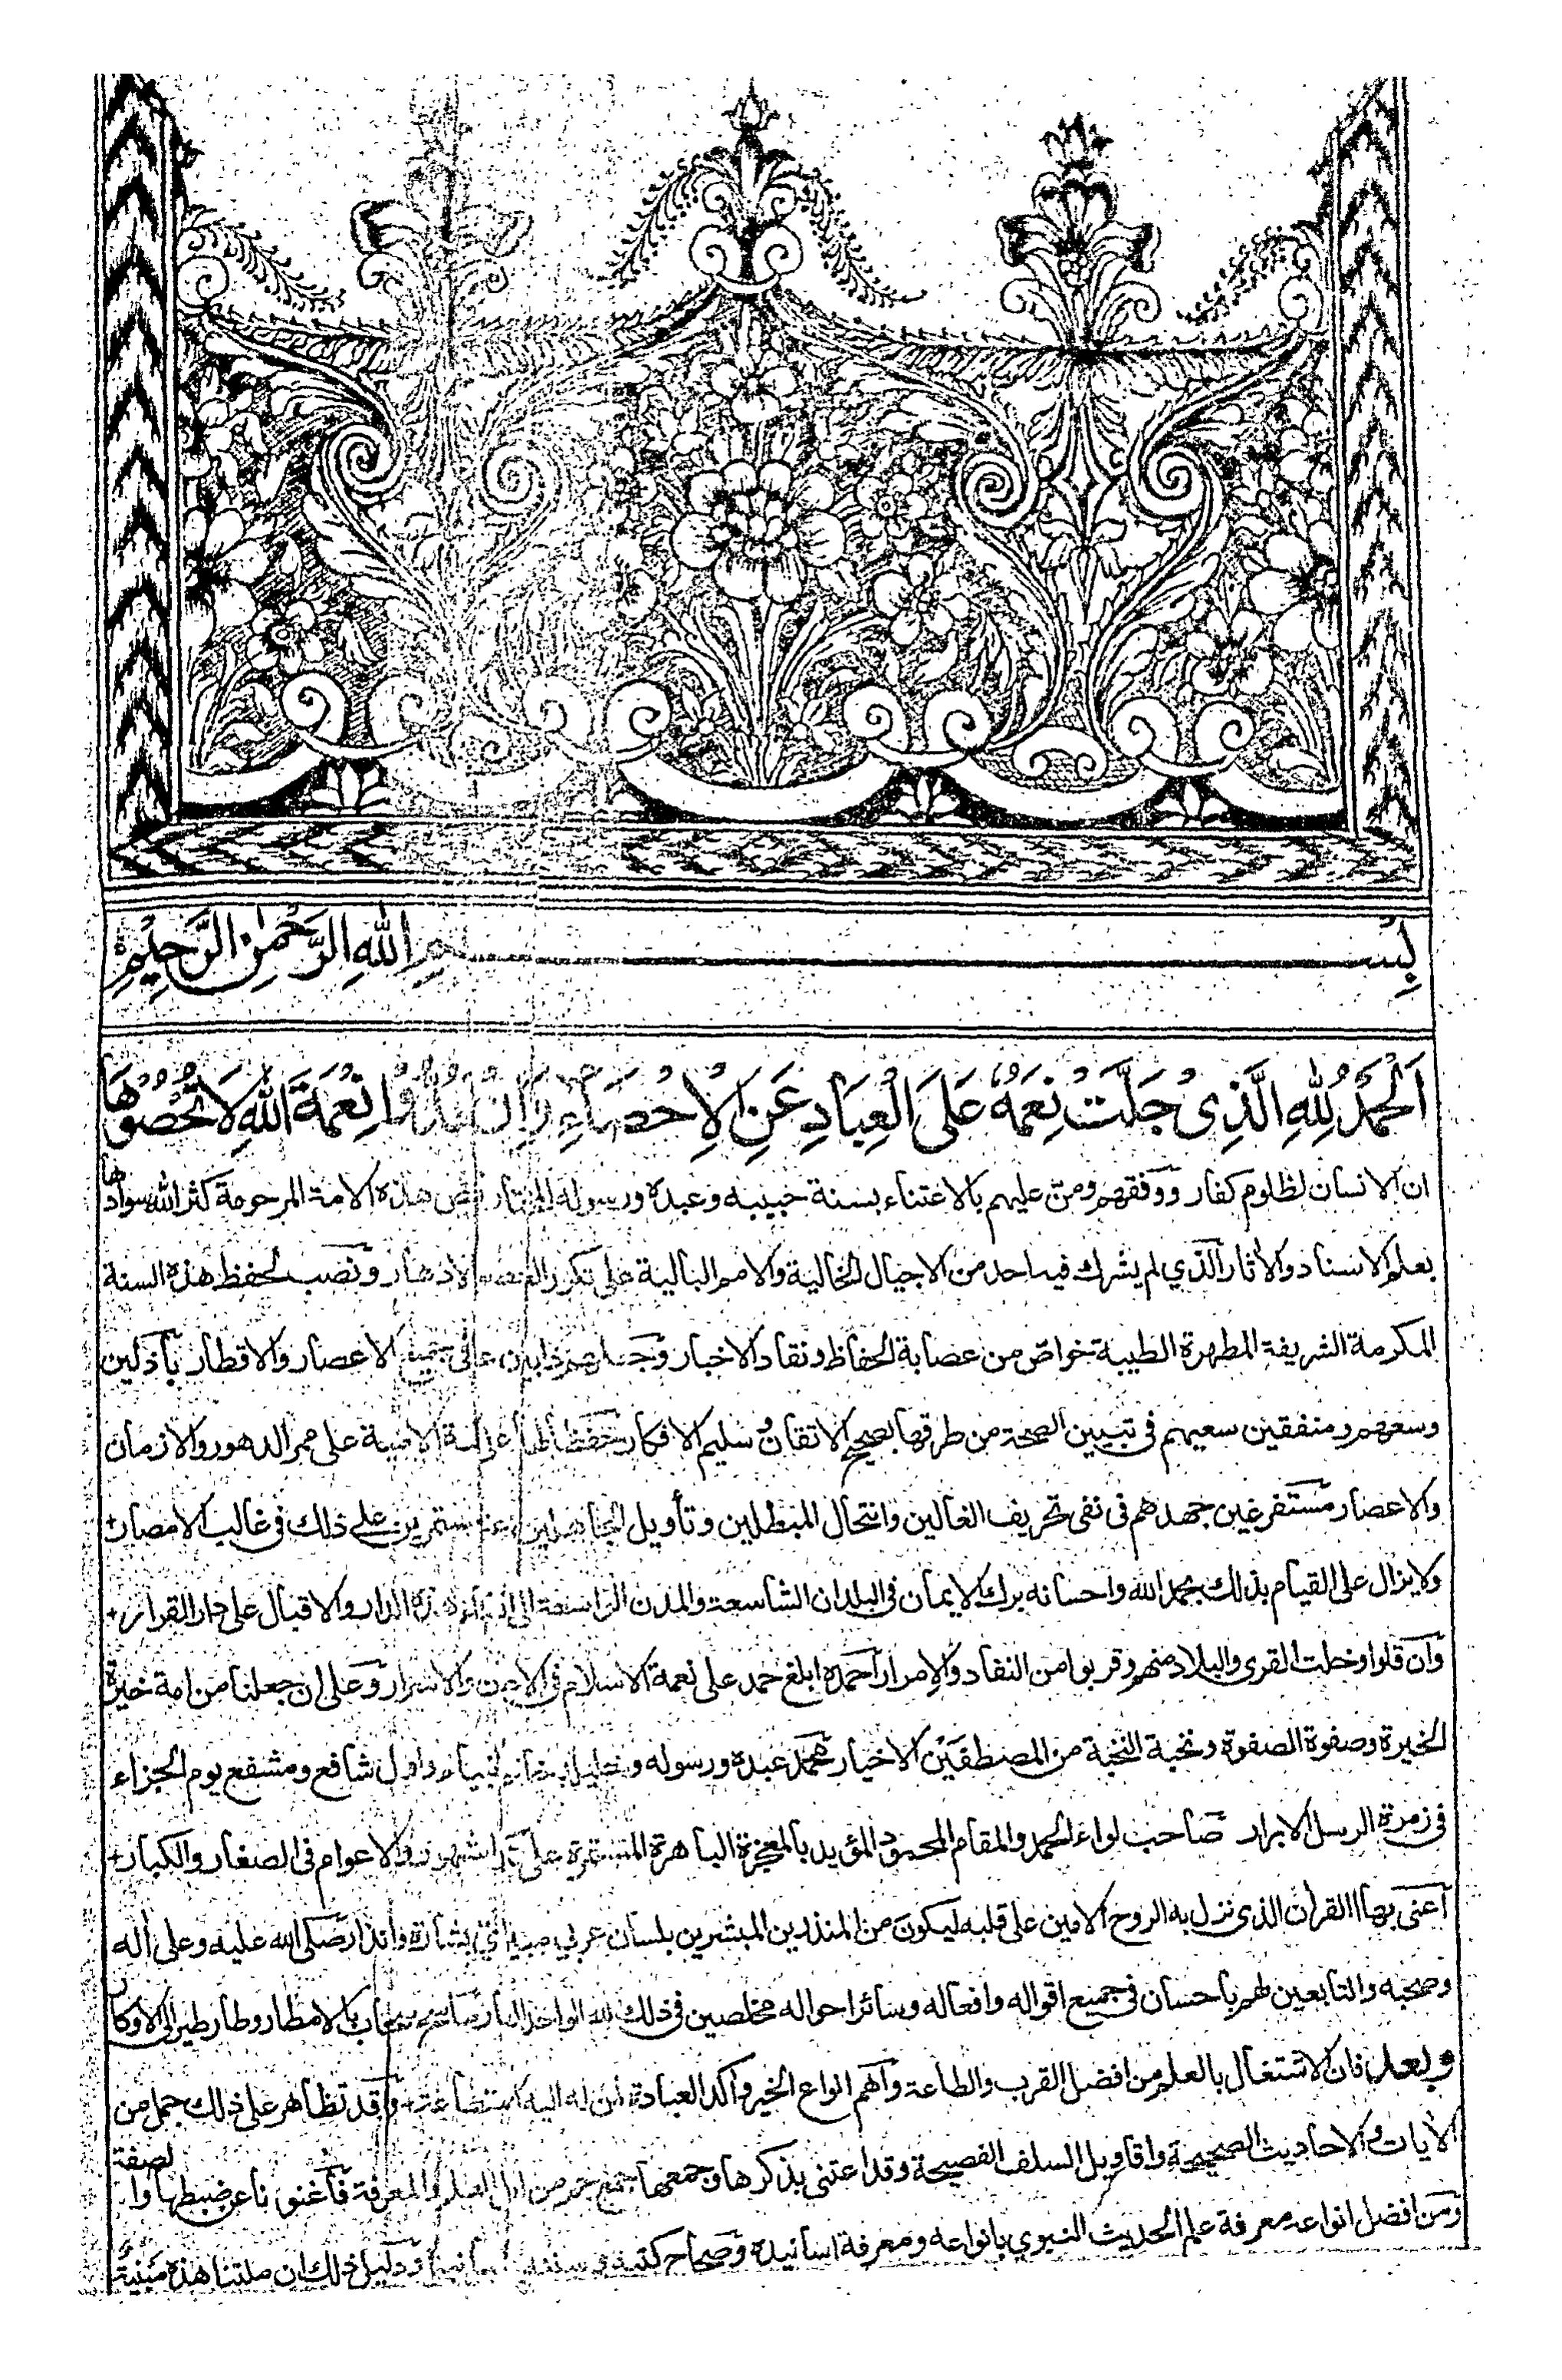 بسم الله الرحمن الرحيم
اَلْحَمْدُ لِلّٰهِ الَّذِى جَلَّتْ نِعَمُهُ عَلَى الْعِبَادِ عَنِ الْاِحْصَاءِ وَاِنْ تَعُدُّوْا نِعْمَةَ اللهِ لَا تُحْصُوْهَا
ان الانسان لظلوم كفار ووفقهم ومنّ عليهم بالاعتناء بسنة حبيبه وعبده ورسوله المختار هذه الامة المرحومة كثر الله سوادها
بعلم الاسناد والأثار الذي لم يشرك فيه احد من الاجيال الخالية والامم البالية على تكرر الادهار ونصب لحفظ هذه السنة
المكرمة الشريفة المطهرة الطيبة خواصّ من عصابة الحفاظ ونقاد الاخبار وجعلهم ذابين عنها فى جميع الاعصار والاقطار باذلين
وسعهم ومنفقين سعيهم فى تبيين الصحة من طرقها بصحيح الاتقان وسليم الافكار حفظا لها على الامة الامية على ممر الدهور والازمان
والاعصار مستفرغين جهدهم فى نفى تحريف الغالين وانتحال المبطلين وتأويل الجاهلين عنها مستمرين على ذلك فى غالب الامصار
ولا يزال على القيام بذلك بحمد الله واحسانه برك الايمان فى البلدان الشاسعة والمدن الواسعة الى الدار والاقبال على دار القرار
وان قلوا وخلت القرى والبلاد منهم وقربوا من النفاد والامرار احمده ابلغ حمد على نعمة الاسلام فى الاعلان والاسرار وعلى ان جعلنا من امة خيرة
الخيرة وصفوة الصفوة ونخبة النخبة من المصطفين الاخيار محمد عبده ورسوله وخليله خاتم الانبياء واول شافع ومشفع يوم الجزاء
فى زمرة الرسل الابرار صاحب لواء الحمد والمقام المحمود المؤيد بالمعجزة الباهرة المستمرة على الشهور والاعوام فى الصغار والكبار
اعنى بها القرأن الذى نزل به الروح الامين على قلبه ليكون من المنذرين المبشرين بلسان عربي مبين اي بشارة وانذار صلى الله عليه وعلى أله
وصحبه والتابعين لهم باحسان فى جميع اقواله وافعاله وسائر احواله مخلصين فى ذلك لله الواحد القهار سحاب بالامطار وطار طير الى الاوكار
وبعد فان الاشتغال بالعلم من افضل القرب والطاعة واهم انواع الخير وأكد العبادة لمن له اليه استطاعة وقد تظاهر على ذلك جمل من
الأيات والاحاديث الصحيحة واقاويل السلف الفصيحة وقد اعتنى بذكرها وجمعها جمع جم من اهل العلم والمعرفة فأغنونا عن ضبطها والصفة
ومن افضل انواعه معرفة علم الحديث النبوي بانواعه ومعرفة اسانيده وصحاح كتبه ودليل ذلك ان ملتنا هذه مبنية